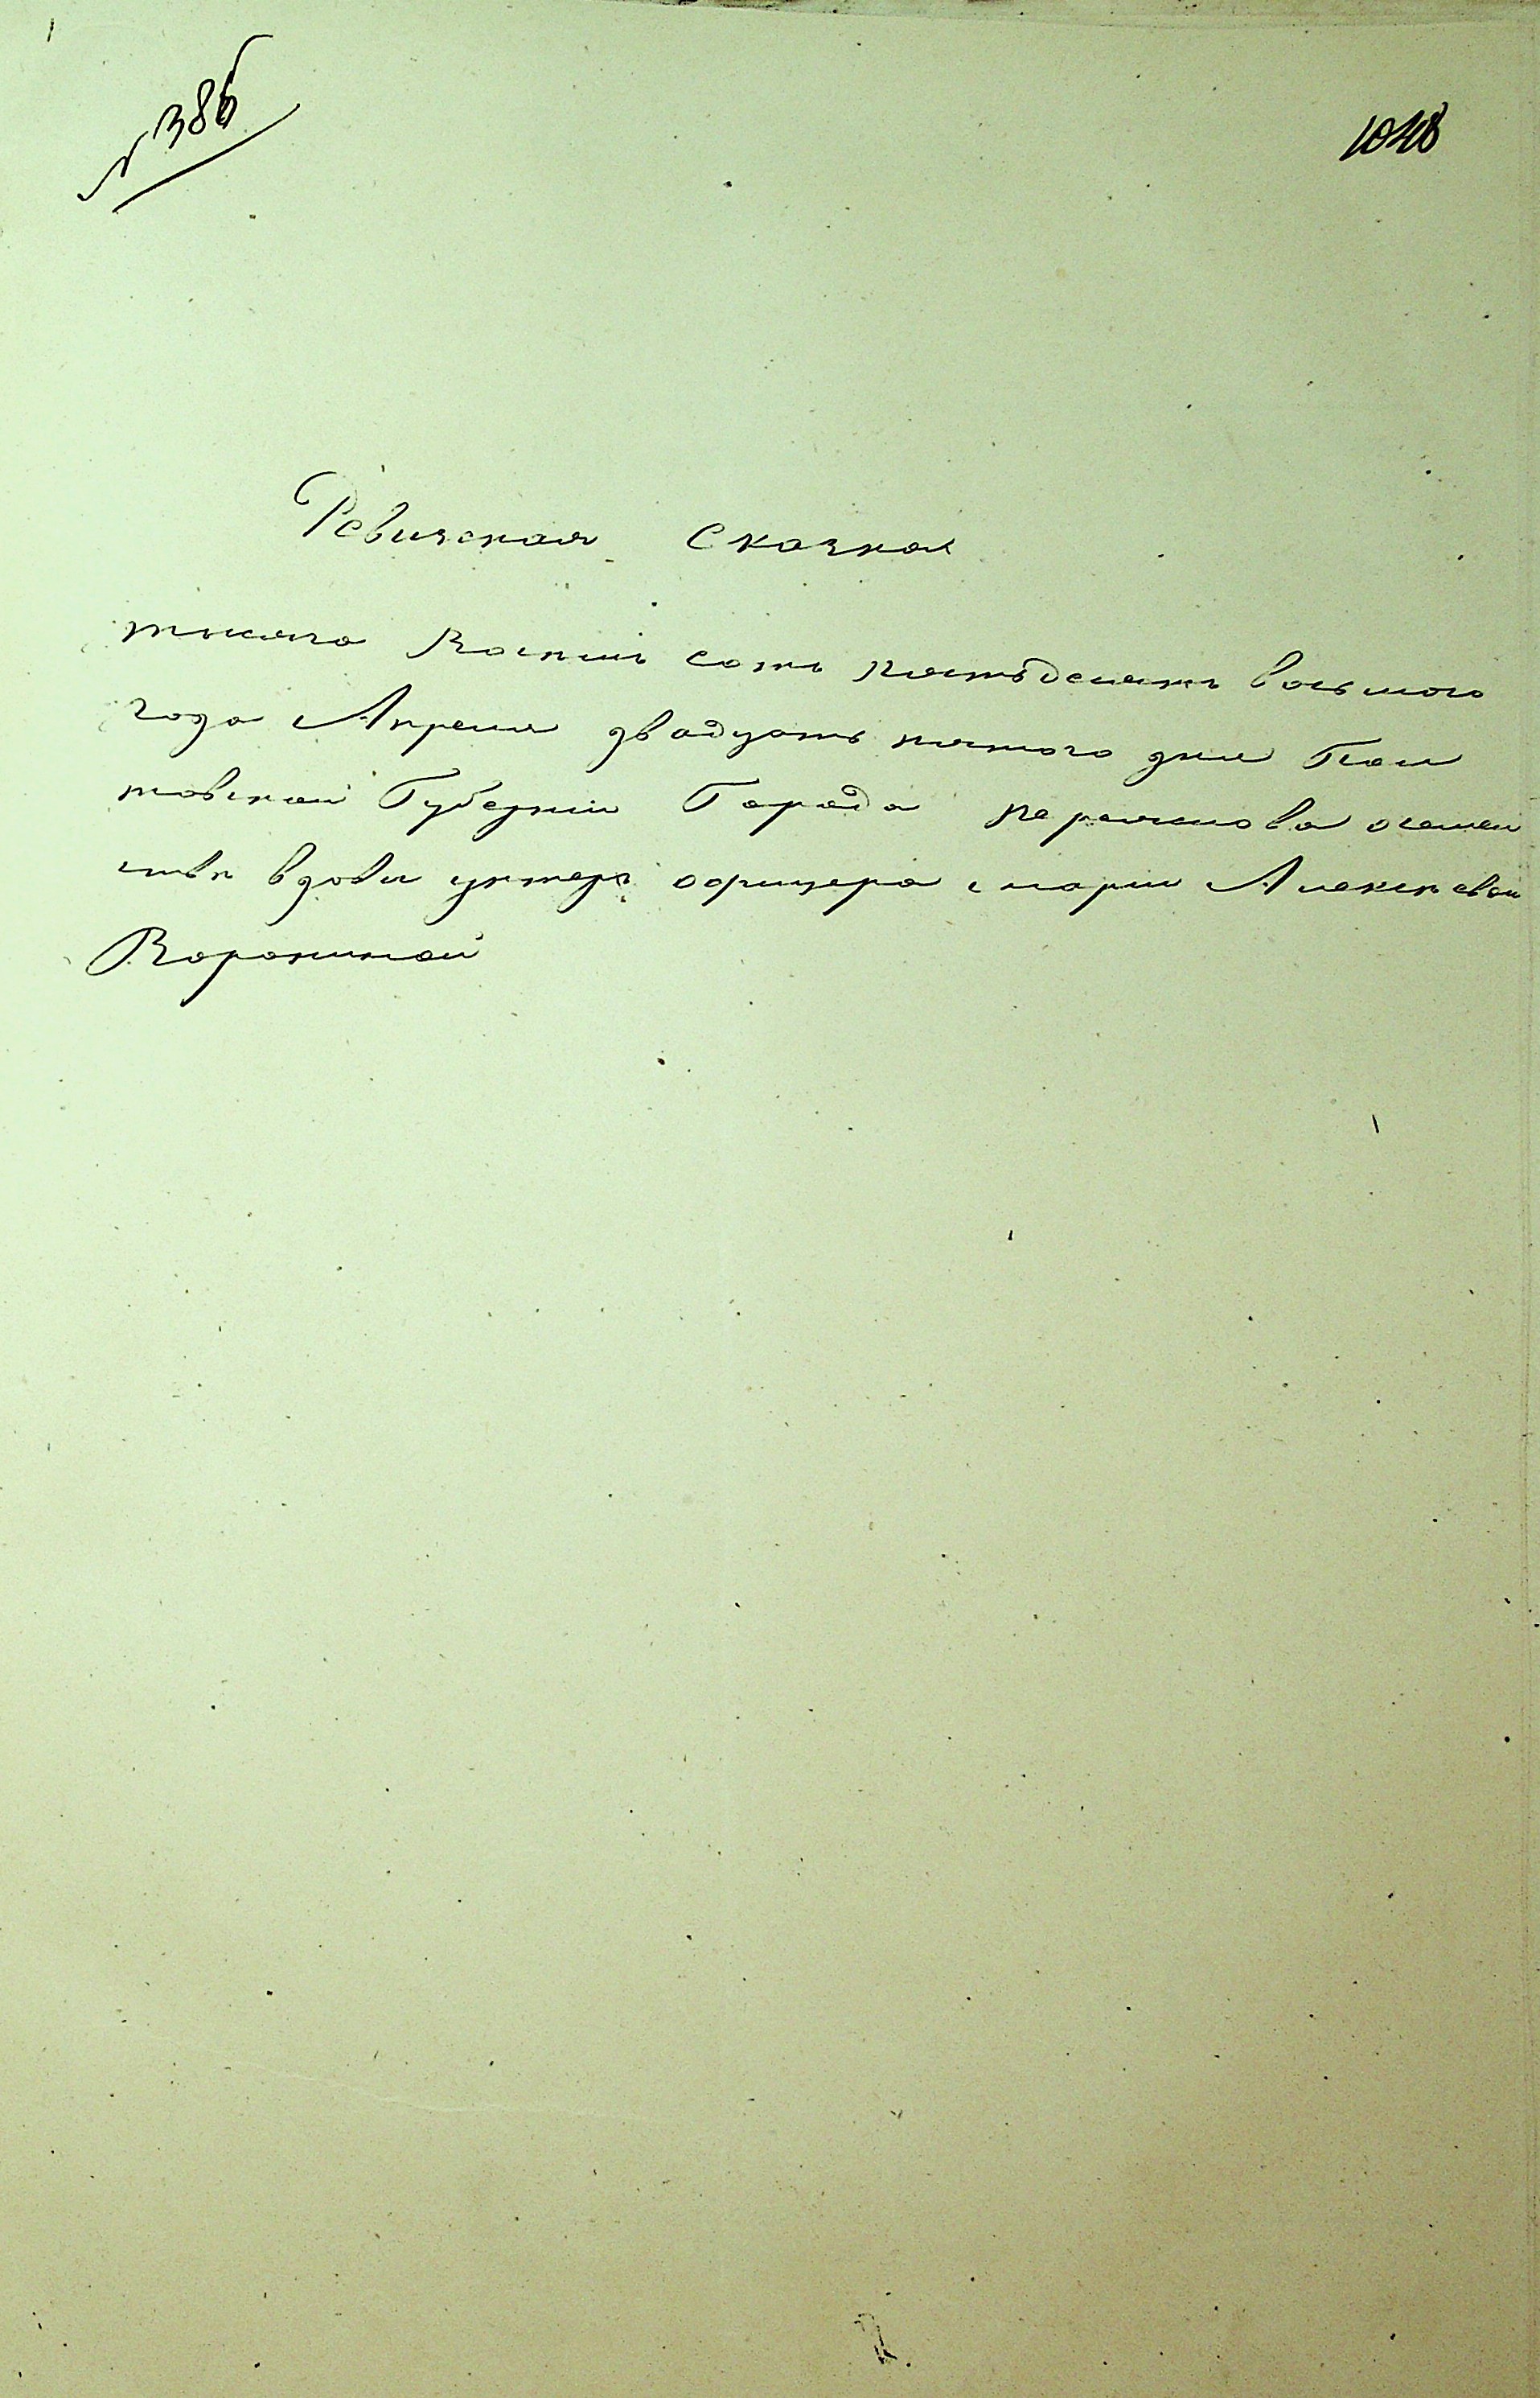 № 386
1048
Ревизская Сказка
тысяча Восемь сотъ пятьдесятъ восьмого
года Апреля двадцать пятого дня Пол
тавской Губернии Города переяслова о семей
ствѣ вдовы унтеръ офицера марии Алексѣевой
Ворониной